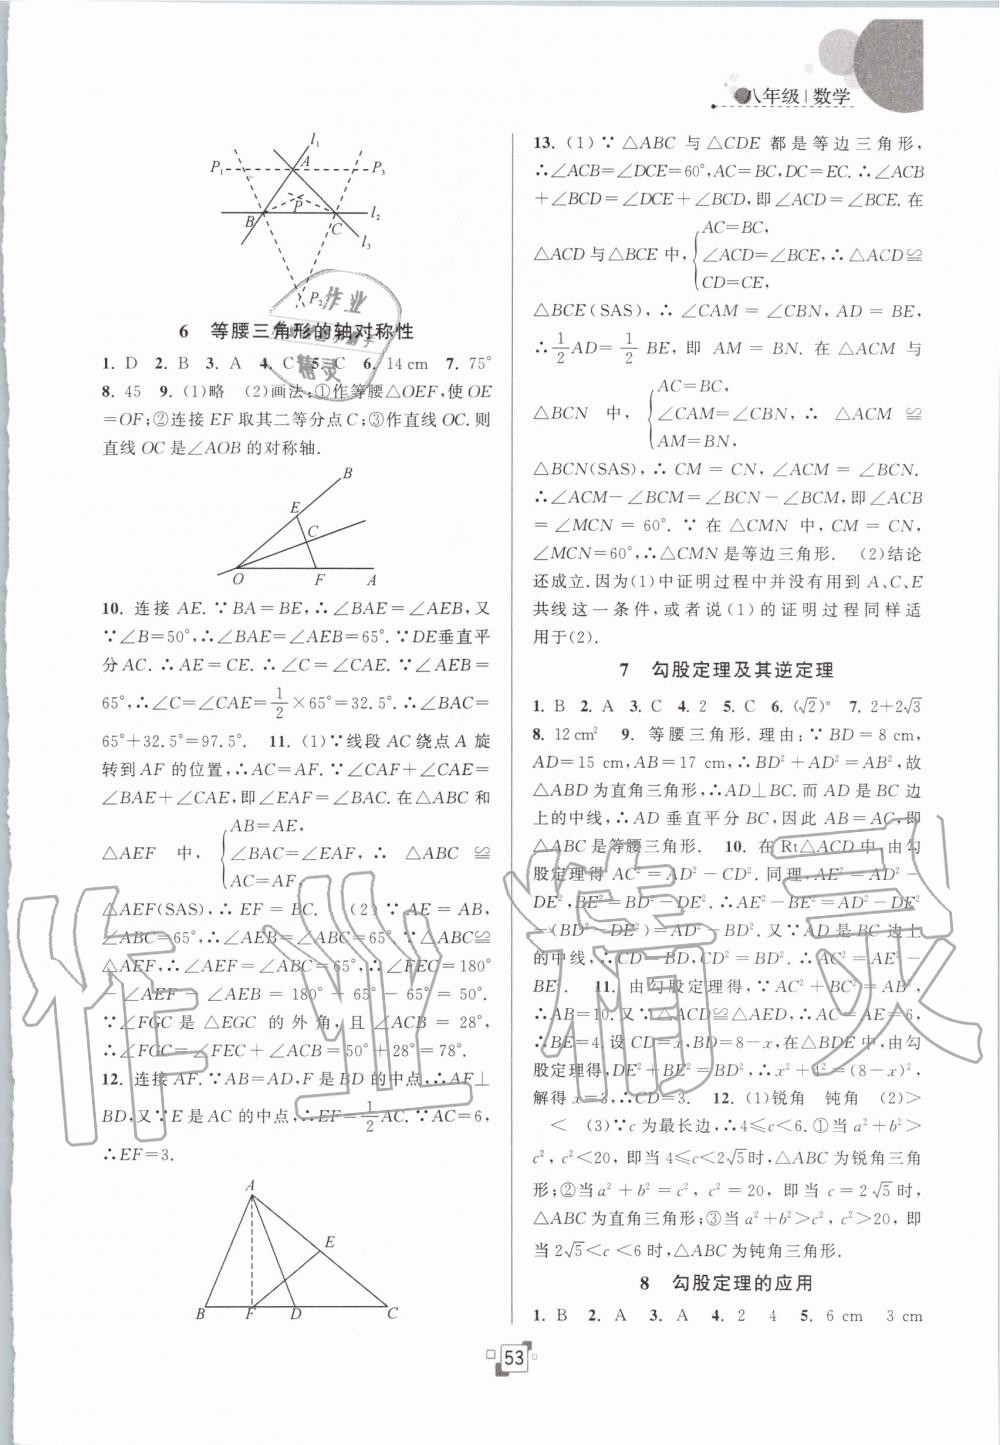 八年级|数学
l₁
P₁
A
P₃
P
B
C
l₂
l₃
P₂
作业
精灵
6 等腰三角形的轴对称性
1. D 2. B 3. A 4. C 5. C 6. 14 cm 7. 75°
8. 45 9. (1)略 (2)画法:①作等腰△OEF,使OE
=OF;②连接EF取其二等分点C;③作直线OC.则
直线OC是∠AOB的对称轴.
B
E
C
O
F
A
10. 连接 AE.∵BA=BE,∴∠BAE=∠AEB,又
∵∠B=50°,∴∠BAE=∠AEB=65°.∵DE垂直平
分AC.∴AE=CE.∴∠C=∠CAE.∵∠AEB=
65°,∴∠C=∠CAE=1/2×65°=32.5°.∴∠BAC=
65°+32.5°=97.5°. 11. (1)∵线段AC绕点A旋
转到AF的位置,∴AC=AF.∵∠CAF+∠CAE=
∠BAE+∠CAE,即∠EAF=∠BAC.在△ABC和
△AEF 中,{AB=AE,
∠BAC=∠EAF,∴ △ABC ≌
AC=AF,
△AEF(SAS),∴EF=BC. (2)∵AE=AB,
∠ABC=65°,∴∠AEB=∠ABC=65°.∵△ABC≌
△AEF,∴∠AEF=∠ABC=65°,∴∠FEC=180°
-∠AEF-∠AEB=180°-65°-65°=50°.
∵∠FGC是△EGC的外角,且∠ACB=28°,
∴∠FGC=∠FEC+∠ACB=50°+28°=78°.
12. 连接AF.∵AB=AD,F是BD的中点,∴AF⊥
BD,又∵E是AC的中点,∴EF=1/2AC.∵AC=6,
∴EF=3.
A
E
B
F
D
C
13. (1)∵△ABC 与△CDE 都是等边三角形,
∴∠ACB=∠DCE=60°,AC=BC,DC=EC.∴∠ACB
+∠BCD=∠DCE+∠BCD,即∠ACD=∠BCE.在
△ACD与△BCE中,{AC=BC,
∠ACD=∠BCE,∴△ACD≌
CD=CE,
△BCE(SAS),∴∠CAM=∠CBN,AD=BE,
∴1/2AD=1/2BE,即 AM=BN.在△ACM 与
△BCN 中,{AC=BC,
∠CAM=∠CBN,∴ △ACM ≌
AM=BN,
△BCN(SAS),∴CM=CN,∠ACM=∠BCN.
∴∠ACM-∠BCM=∠BCN-∠BCM,即∠ACB
=∠MCN=60°.∵在△CMN中,CM=CN,
∠MCN=60°,∴△CMN是等边三角形. (2)结论
还成立.因为(1)中证明过程中并没有用到A、C、E
共线这一条件,或者说(1)的证明过程同样适
用于(2).
7 勾股定理及其逆定理
1. B 2. A 3. C 4. 2 5. C 6. (√2)ⁿ 7. 2+2√3
8. 12 cm² 9. 等腰三角形.理由:∵BD=8 cm,
AD=15 cm,AB=17 cm,∴BD²+AD²=AB²,故
△ABD为直角三角形,∴AD⊥BC.而AD是BC边
上的中线,∴AD垂直平分BC,因此AB=AC,即
△ABC是等腰三角形. 10. 在Rt△ACD中,由勾
股定理得AC²=AD²-CD².同理,AE²=AD²-
DE²,BE²=BD²-DE².∴AE²-BE²=AD²-DE²
-(BD²-DE²)=AD²-BD².又∵AD是BC边上
的中线,∴CD=BD,CD²=BD².∴AC²=AE²-
BE². 11. 由勾股定理得,∵AC²+BC²=AB²,
∴AB=10.又∵△ACD≌△AED,∴AC=AE=6,
∴BE=4.设CD=x,BD=8-x,在△BDE中,由勾
股定理得,DE²+BE²=BD²,∴x²+4²=(8-x)²,
解得x=3,∴CD=3. 12. (1)锐角 钝角 (2)>
< (3)∵c为最长边,∴4≤c<6.①当a²+b²>
c²,c²<20,即当4≤c<2√5时,△ABC为锐角三角
形;②当a²+b²=c²,c²=20,即当c=2√5时,
△ABC为直角三角形;③当a²+b²>c²,c²>20,即
当2√5<c<6时,△ABC为钝角三角形.
8 勾股定理的应用
1. B 2. A 3. A 4. 2 4 5. 6 cm 3 cm
53
作业精灵